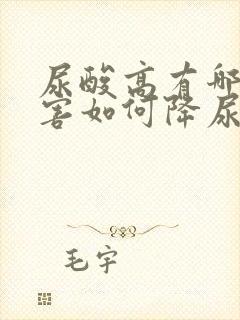 尿酸高有哪
害如何降尿
毛宇